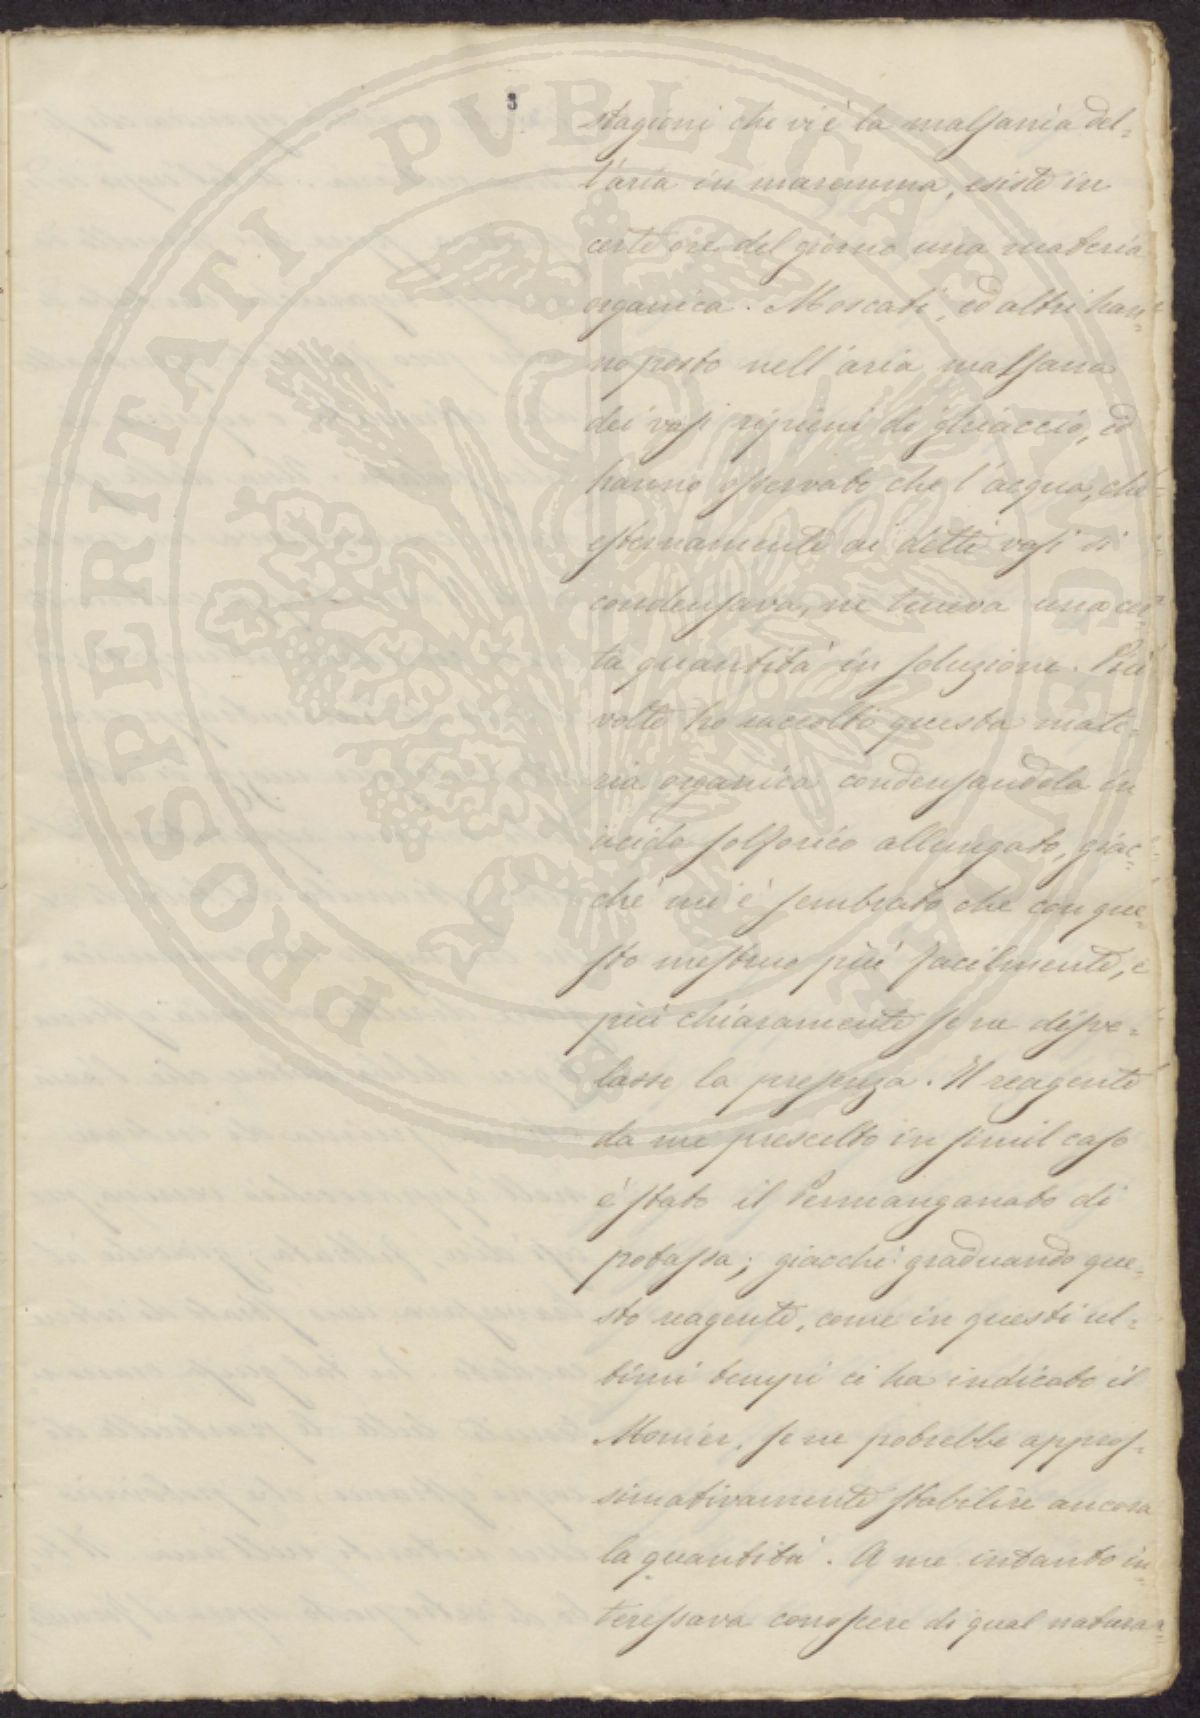 3
stagioni che vi è la malsania del=
l'aria in maremma, esiste in
certe ore del giorno una materia
organica. Moscati, ed altri han=
no posto nell'aria malsana
dei vasi ripieni di ghiaccio, ed
hanno osservato che l'acqua, che
esternamente ai detti vasi si
condensava, ne teneva una cer=
ta quantità in soluzione. Più
volte ho raccolto questa mate=
ria organica condensandola in
acido solforico allungato, giac=
chè mi è sembrato che con que=
sto mestruo più facilmente, e
più chiaramente se ne disve=
lasse la presenza. Il reagente
da me prescelto in simil caso
è stato il Permanganato di
potassa; giacchè graduando que=
sto reagente, come in questi ul=
timi tempi ci ha indicato il
Monier, se ne potrebbe appros=
simativamente stabilire ancora
la quantità. A me intanto in=
teressava conoscere di qual natura=
PROSPERITATI PUBLICAE AUGENDAE